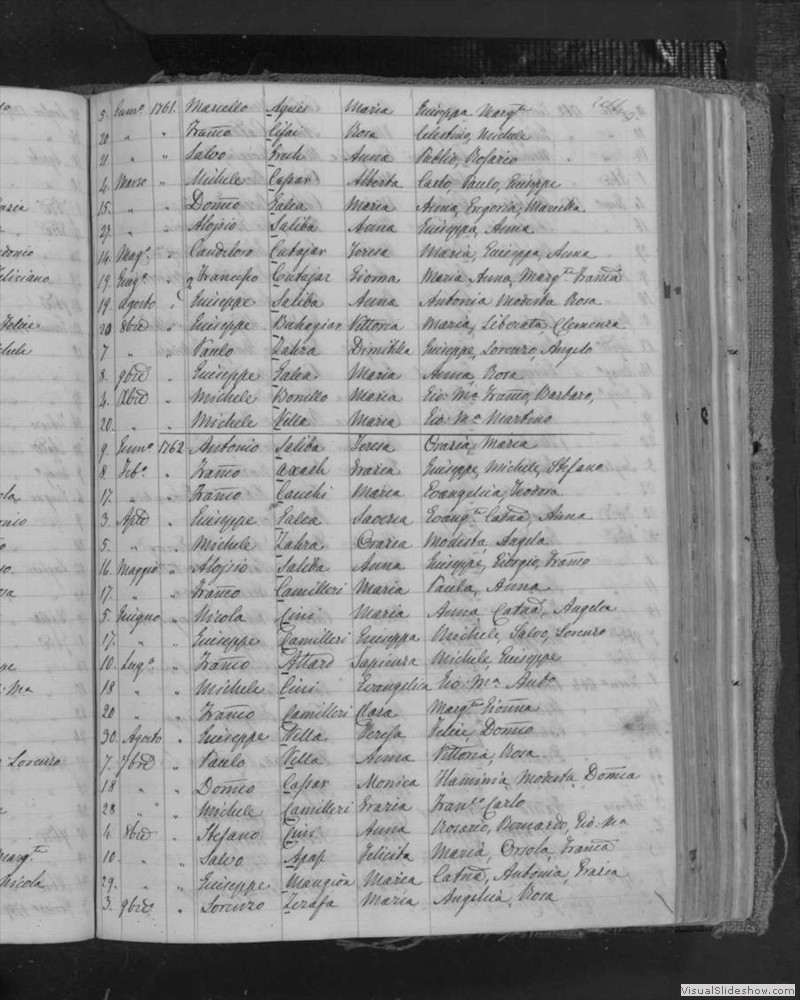 5. Genn.º 1761 Marcello Agius Maria Giuseppa Marg.ta
20 " " Fran.co Cifai Rosa Celestino, Michele
21 " " Salvo Frech Anna Publio, Rosario
4. Marzo " Michele Caspar Alberta Carlo, Paulo, Giuseppe
15. " " Dom.co Galea Maria Anna, Gregoria, Marietta
27. " " Aloisio Saliba Anna Giuseppa, Anna
14 Mag.º " Candeloro Cutajar Teresa Maria, Giuseppa, Anna
19. Giug.º " Francesco Cutajar Gioma Maria Anna, Marg.ta Fran.ca
19 Agosto " Giuseppe Saliba Anna Antonia Modesta Rosa
20 8bre " Giuseppe Buhagiar Vittoria Maria, Liberata Clemenza
7 " " Paulo Zahra Dimitilla Giuseppe, Lorenzo, Angelo
8. 9bre " Giuseppe Galea Maria Anna, Rosa
4. Xbre " Michele Bonello Maria Gio: M.a Fran.co, Barbaro,
20. " " Michele Villa Maria Gio: M.a Martino
9. Genn.º 1762 Antonio Saliba Teresa Grazia, Maria
8 Feb.º " Fran.co Axach Grazia Giuseppe, Michele, Stefano
17. " " Fran.co Cauchi Maria Evangelica, Teodora
3. Aple " Giuseppe Galea Saveria Evang.ta Cat.na, Anna
5. " " Michele Zahra Grazia Modesta Angela
16. Maggio " Aloisio Saliba Anna Giuseppe, Giorgio, Fran.co
17. " " Fran.co Camilleri Maria Paula, Anna
5. Giugno " Nicola Cini Maria Anna, Cat.na, Angela
17. " " Giuseppe Camilleri Giuseppa Michele, Salvo, Lorenzo
10. Lug.º " Fran.co Attard Sapienza Michele, Giuseppe
18 " " Michele Cini Evangelica Gio: M.a And.a
20 " " Fran.co Camilleri Clara Marg.ta Gionna
30. Agosto " Giuseppe Villa Teresa Felice, Dom.co
7. 7bre " Paulo Villa Anna Vittoria, Rosa
18 " " Dom.co Caspar Monica Flaminia, Modesta, Dom.ca
28 " " Michele Camilleri Grazia Fran.co Carlo
4. 8bre " Stefano Cini Anna Rosario, Bernardo, Gio: M.a
10. " " Salvo Apap Felicita Maria, Orsola, Fran.ca
29. " " Giuseppe Mangion Maria Cat.na, Antonia, Grazia
3. 9bre " Lorenzo Zerafa Maria Angelica, Rosa
VisualSlideshow.com